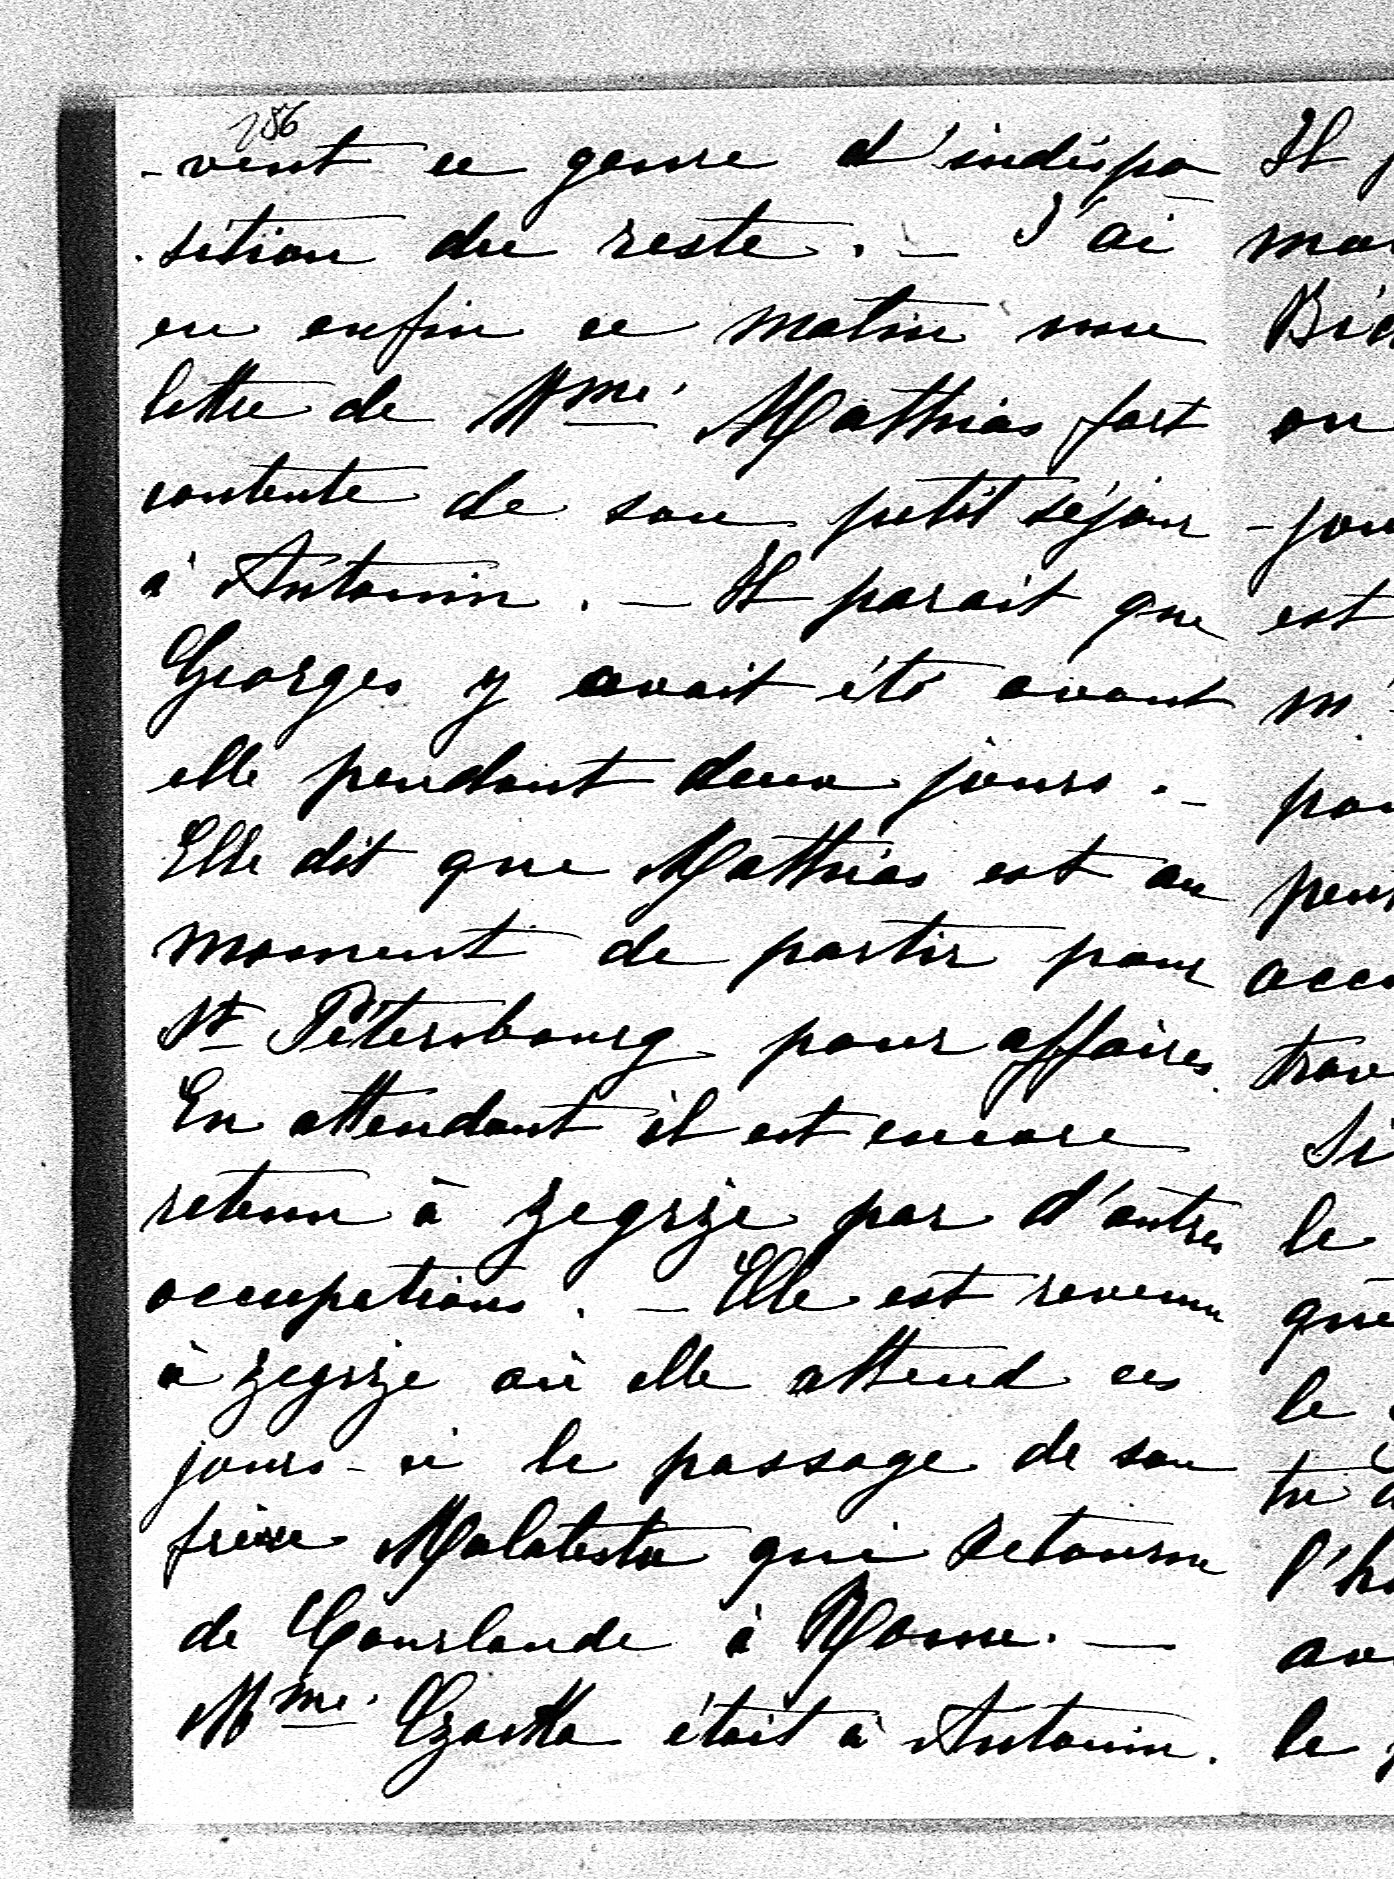 286
-vent ce genre d'indispo
-sition du reste. — J'ai
eu enfin ce matin une
lettre de Mme Mathias fort
contente de son petit séjour
à Antonin. — Il parait que
Georges y avait été avant
elle pendant deux jours. —
Elle dit que Mathias est au
moment de partir pour
St Pétersbourg pour affaires.
En attendant il est encore
retenu à Zegrze par d'autres
occupations. — Elle est revenue
à Zegrze où elle attend ces
jours-ci le passage de son
frère Malatesta qui retourne
de Courlande à Rome. —
Mme Czacka était à Antonin.
Il
on
est
le
le
le